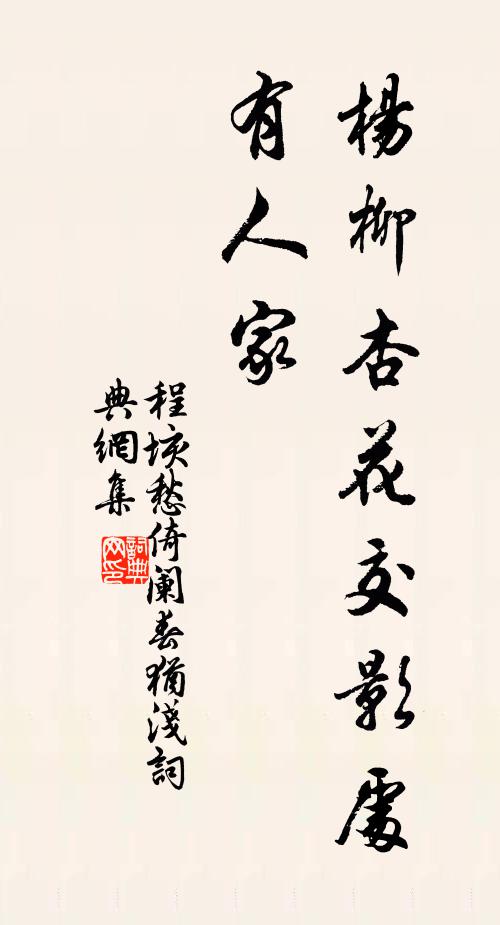 楊柳杏花交影處
有人家
程垓愁倚闌春猶淺詞
典網集
詞典
网印